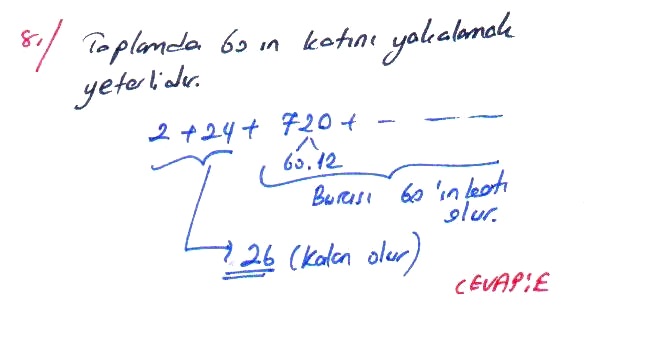 8./ Toplamda 60 ın katını yakalamak
yeterlidir.
2 + 24 + 720 + - — —
60.12
Burası 60'ın katı
olur.
26 (kalan olur)
CEVAP: E